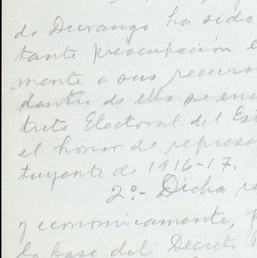 de Durango ha sido
tante preocupación e
mente a sus recurs
dentro de ella se enc
trito Electoral del Es
el honor de represe
tuyente de 1916-17.
2º.- Dicha re
y economicamente, p
la base del Decreto